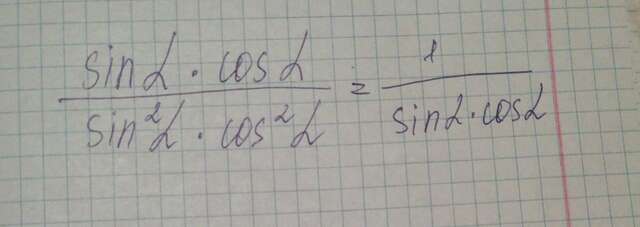 sinα · cosα / sin²α · cos²α = 1 / sinα · cosα